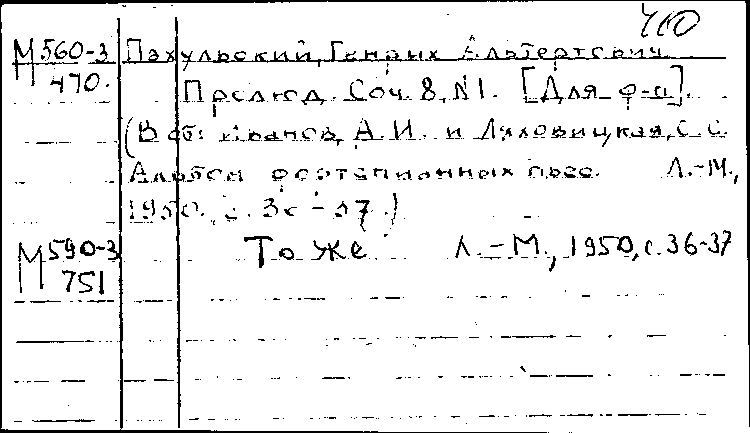 400
М560-3 Пахульский, Генрих Альбертович.
470. Прелюд. Соч. 8, №1. [Для ф-п].
(В сб: Иванов, А.И. и Ляховицкая, С.С.
Альбом фортепианных пьес. Л.-М.,
1950. с. 36-37.)
М590-3 То же Л.-М., 1950, с. 36-37
751